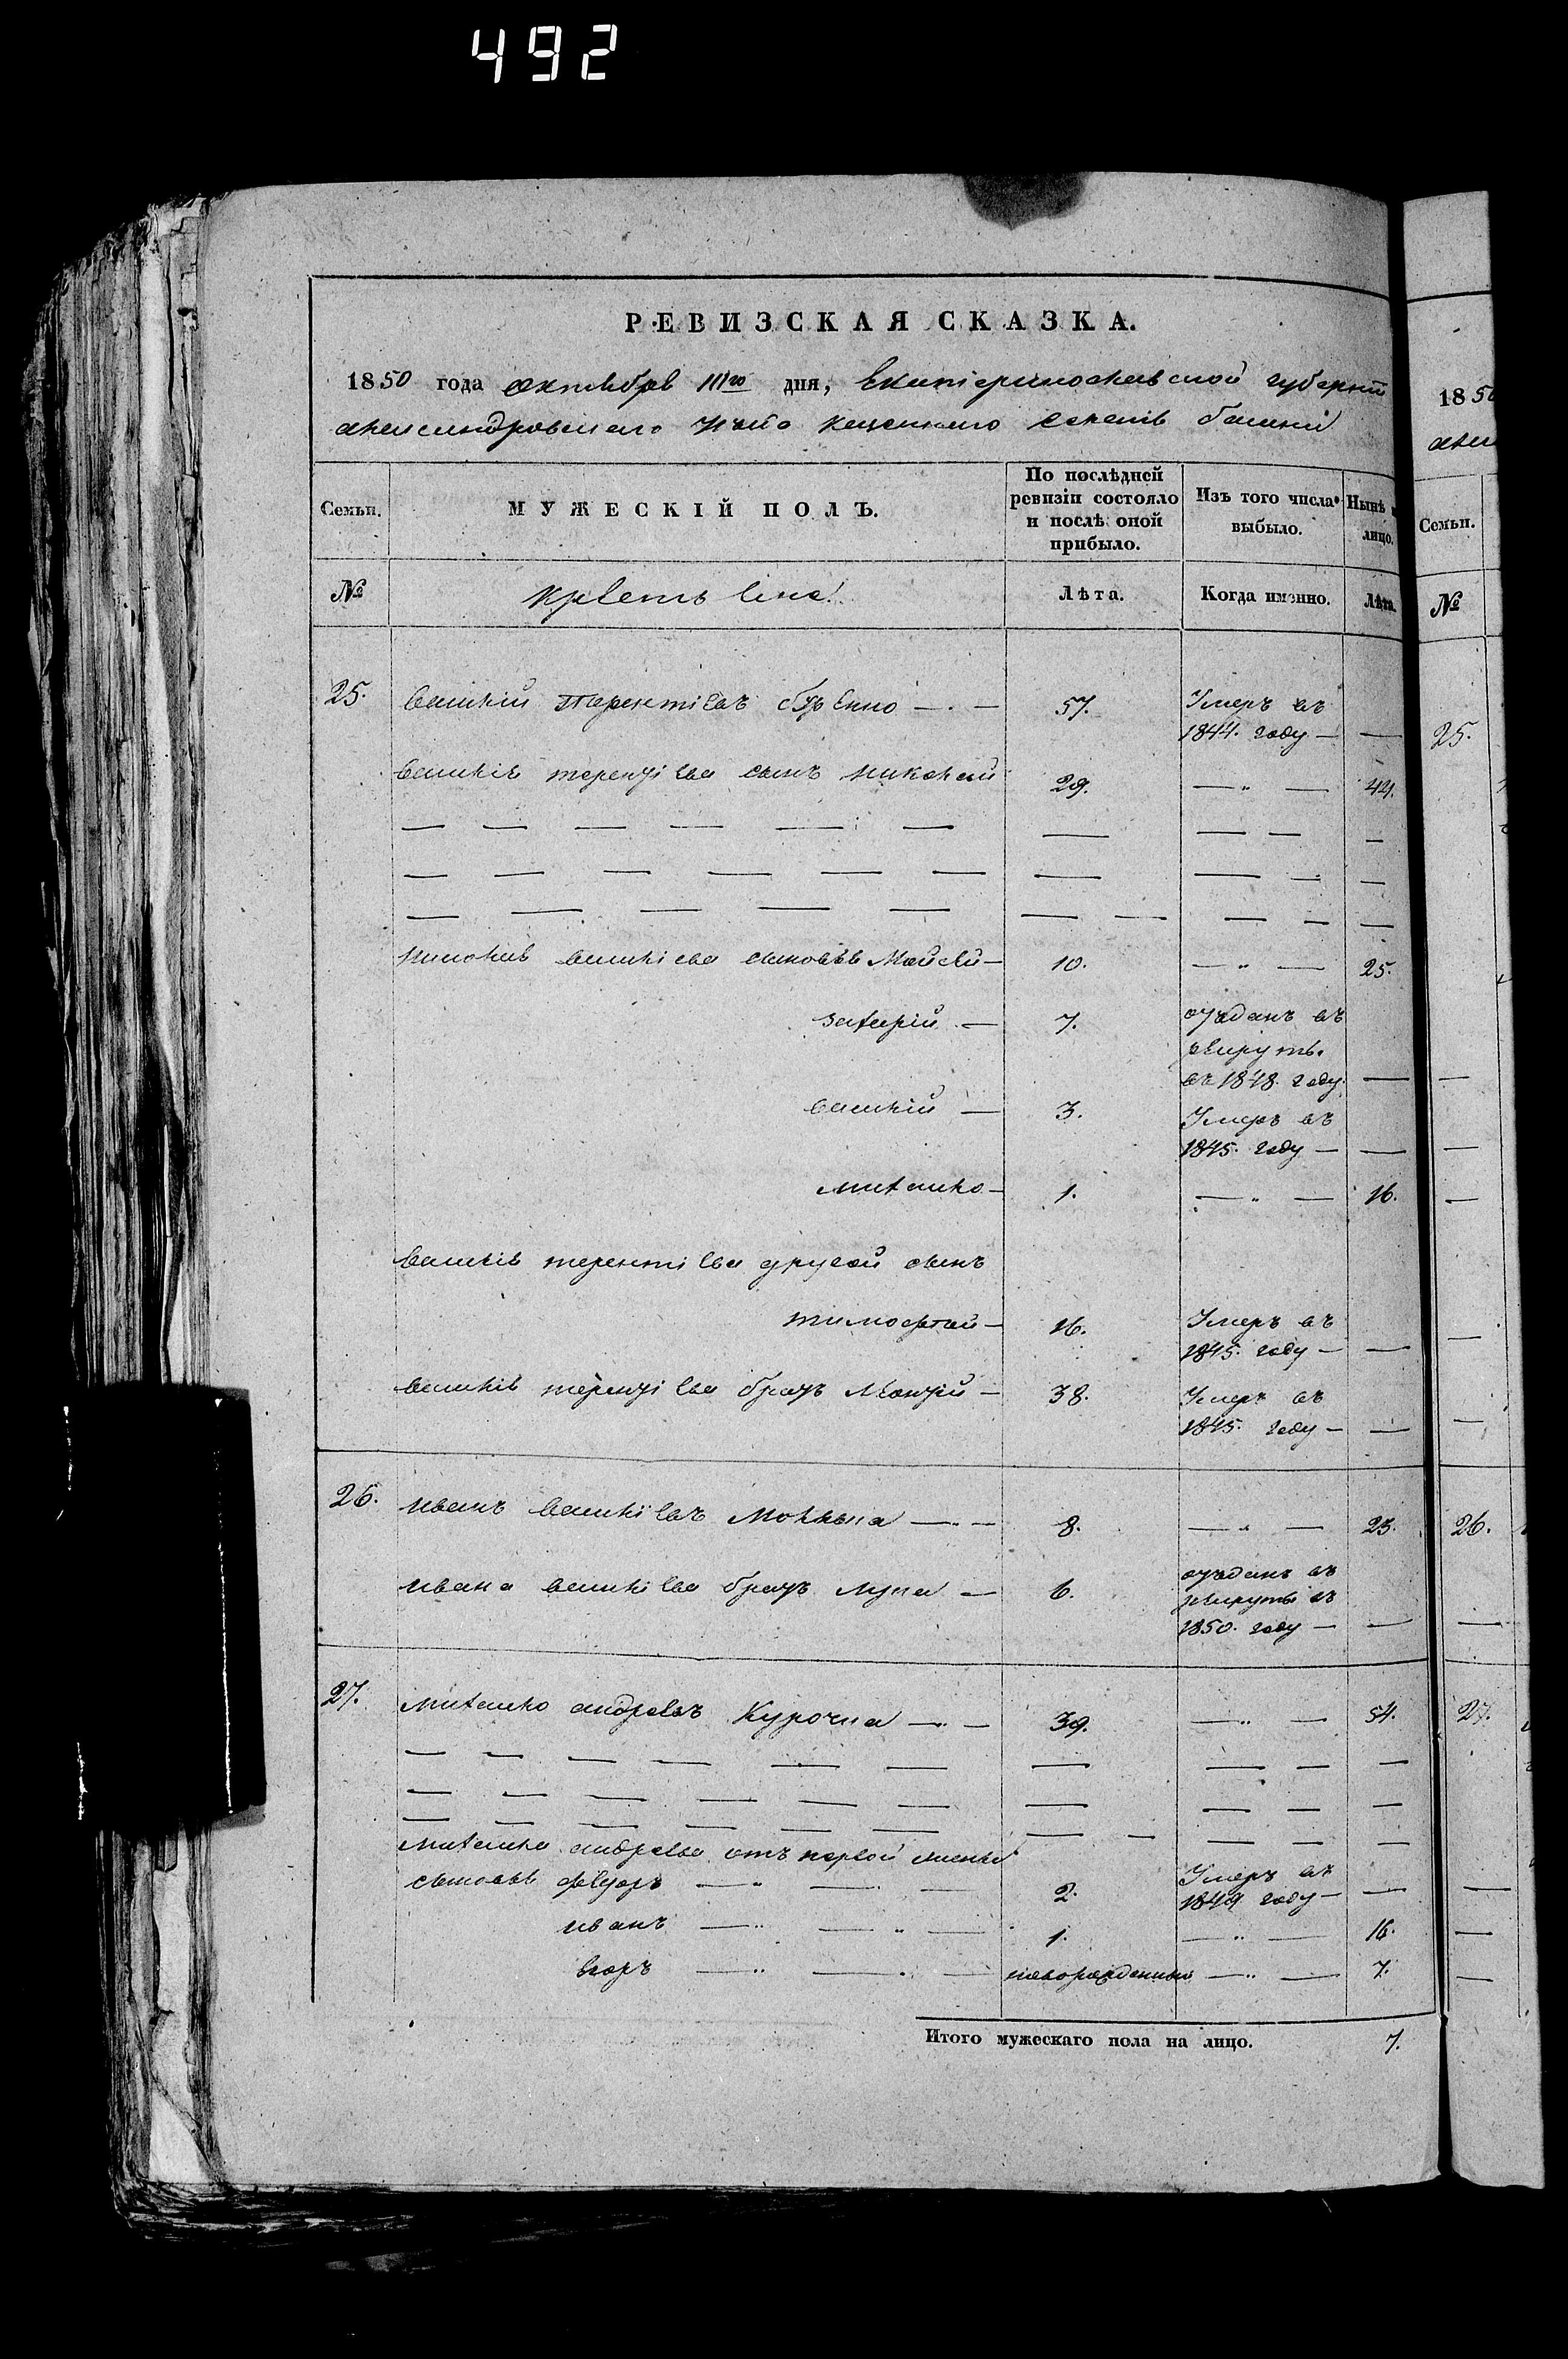 492
РЕВИЗСКАЯ СКАЗКА.
1850 года октебрв 111го дня, Екатеринославской губернiи
александровскаго казеннаго
Семьи. МУЖЕСКІЙ ПОЛЪ. По послѣдней ревизіи состояло и послѣ оной прибыло. Изъ того числа выбыло. Нынѣ на лицо.
№ Лѣта. Когда именно. Лѣта.
25. Василий Терентiевъ 57. Умеръ въ 1844. году — —
Василiя терентiева сынъ николай 29. — " — 44.
николая василiева сыновья Мойсей — 10. — " — 25.
захарiй — 7. отъданъ въ рекруты въ 1848. году —
василiй — 3. Умеръ въ 1845. году — —
михайло — 1. — " — 16.
Василiя терентiева другой сынъ
тимофтей — 16. Умеръ въ 1845. году — —
василiя терентiева братъ Леонтiй — 38. Умеръ въ 1845. году — —
26. иванъ василiевъ — " — 8. — " — 23.
ивана василiева братъ лука — 6. отъданъ въ рекруты въ 1850. году — —
27. михайло андреевъ Курочка — " — 39. — " — 54.
михайла андреева отъ первой жены
сыновья феดоръ — " — 2. Умеръ въ 1849 году — —
иванъ — " — 1. — " — 16.
егоръ — " — новорожденный — " — 7.
Итого мужескаго пола на лицо. 7.
1850
Семьи.
№
25.
26.
27.